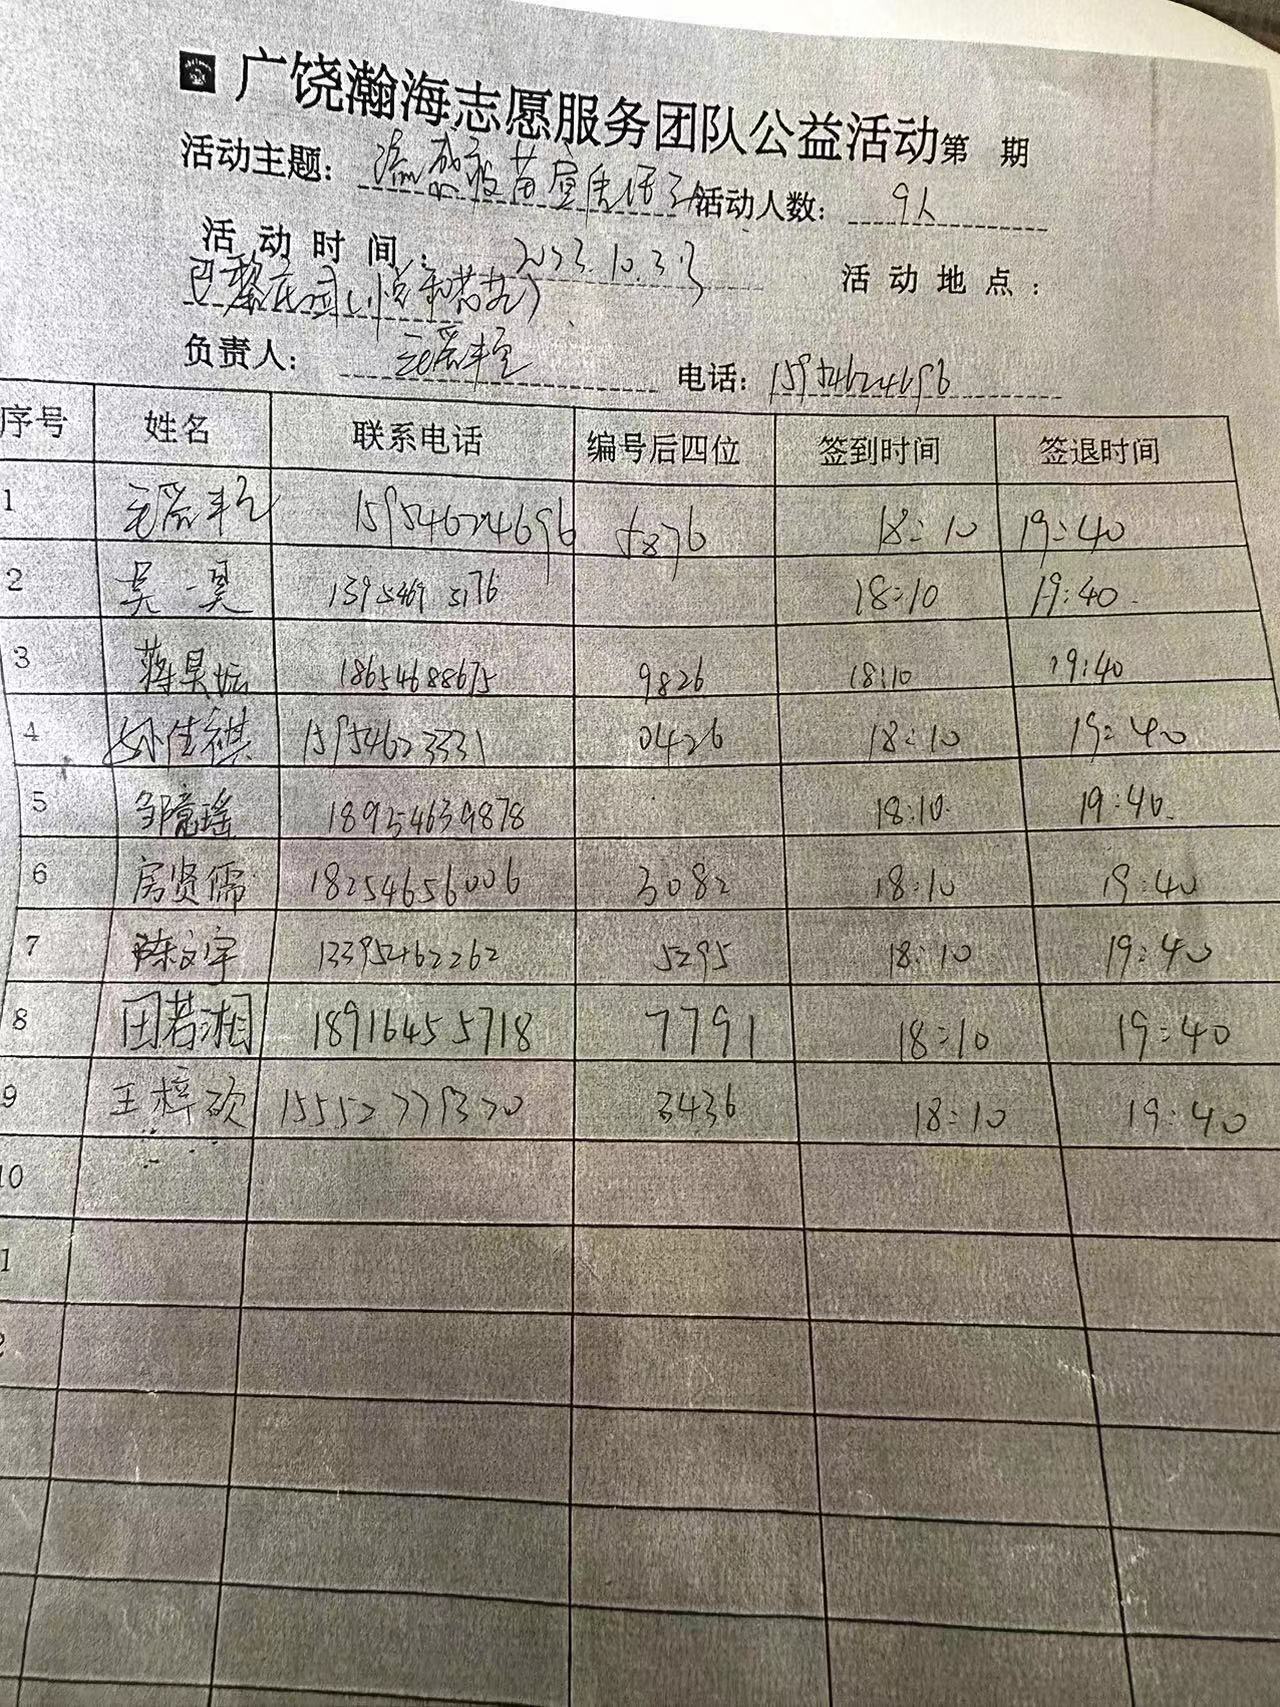 广饶瀚海志愿服务团队公益活动第 期
活动主题: 流感疫苗宣传活动 活动人数: 9人
活动时间: 2023.10. 活动地点:
巴黎庄园
负责人: 电话: 15954624696
序号 姓名 联系电话 编号后四位 签到时间 签退时间
1 15954624696 5876 18:10 19:40
2 吴一昊 13954695176 18:10 19:40
3 蒋昊坛 18654688675 9826 18:10 19:40
4 孙佳祺 15954623331 0426 18:10 19:40
5 邹意瑶 18954639878 18:10 19:40
6 房贤儒 18254656006 3082 18:10 19:40
7 陈文宇 13395462262 5295 18:10 19:40
8 田若湘 18916455718 7791 18:10 19:40
9 王梓硕 3436 18:10 19:40
10